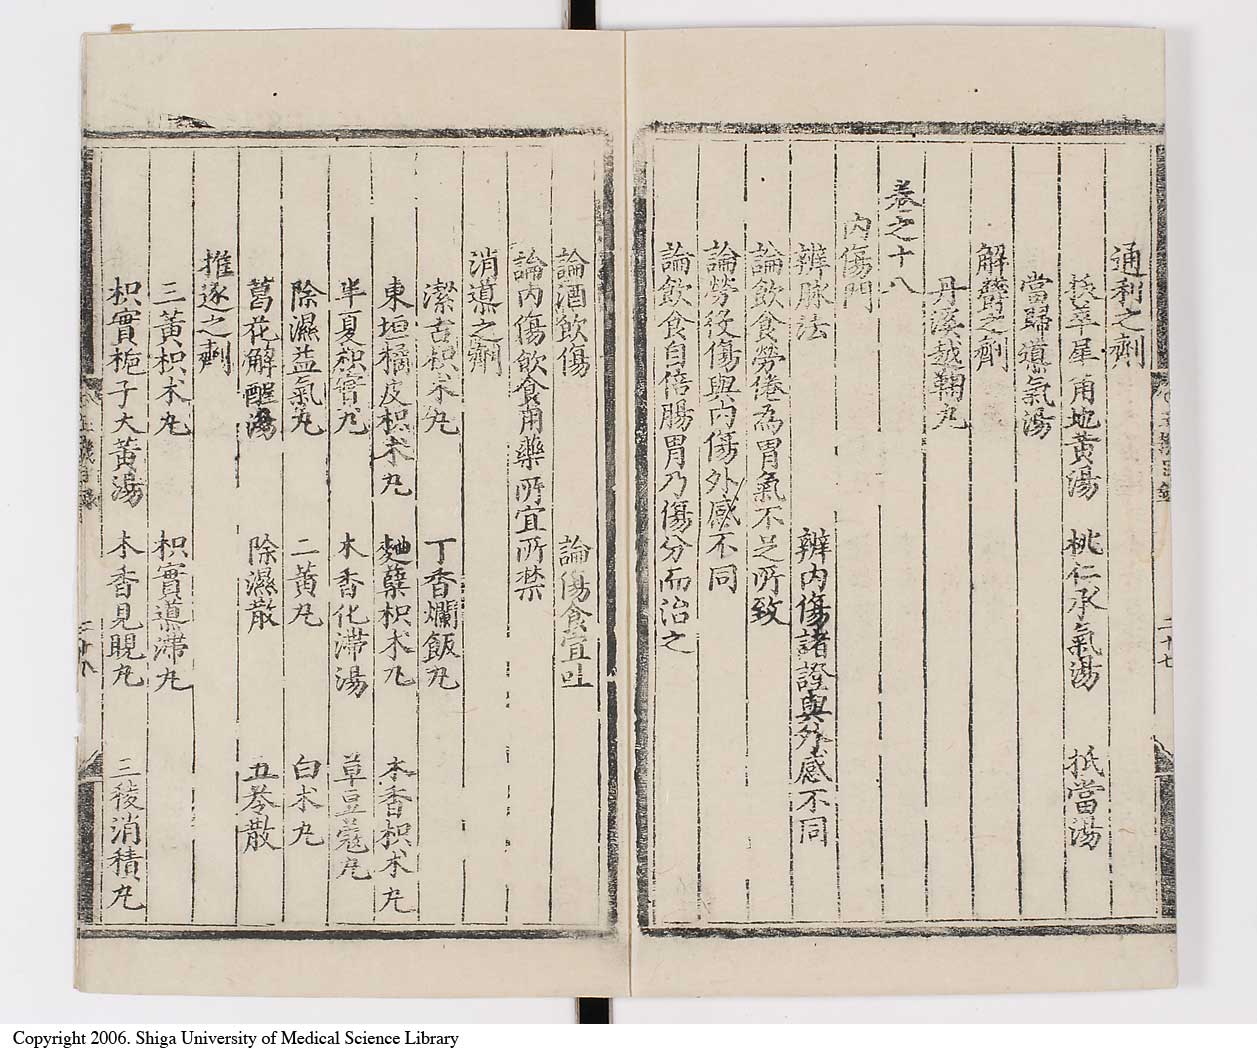 通利之劑
拔萃犀角地黃湯 桃仁承氣湯 抵當湯
當歸導氣湯
解鬱之劑
丹溪越鞠丸
卷之十八
內傷門
辨脉法 辨內傷諸證與外感不同
論飲食勞倦為胃氣不足所致
論勞役傷與內傷外感不同
論飲食自倍腸胃乃傷分而治之
二十七
論酒飲傷 論傷食宜吐
論內傷飲食用藥所宜所禁
消導之劑
潔古枳朮丸 丁香爛飯丸
東垣橘皮枳朮丸 麯蘖枳朮丸 木香枳朮丸
半夏枳實丸 木香化滯湯 草豆蔻丸
除濕益氣丸 二黃丸 白朮丸
葛花解酲湯 除濕散 五苓散
推逐之劑
三黃枳朮丸 枳實導滯丸
枳實梔子大黃湯 木香見晛丸 三稜消積丸
Copyright 2006. Shiga University of Medical Science Library